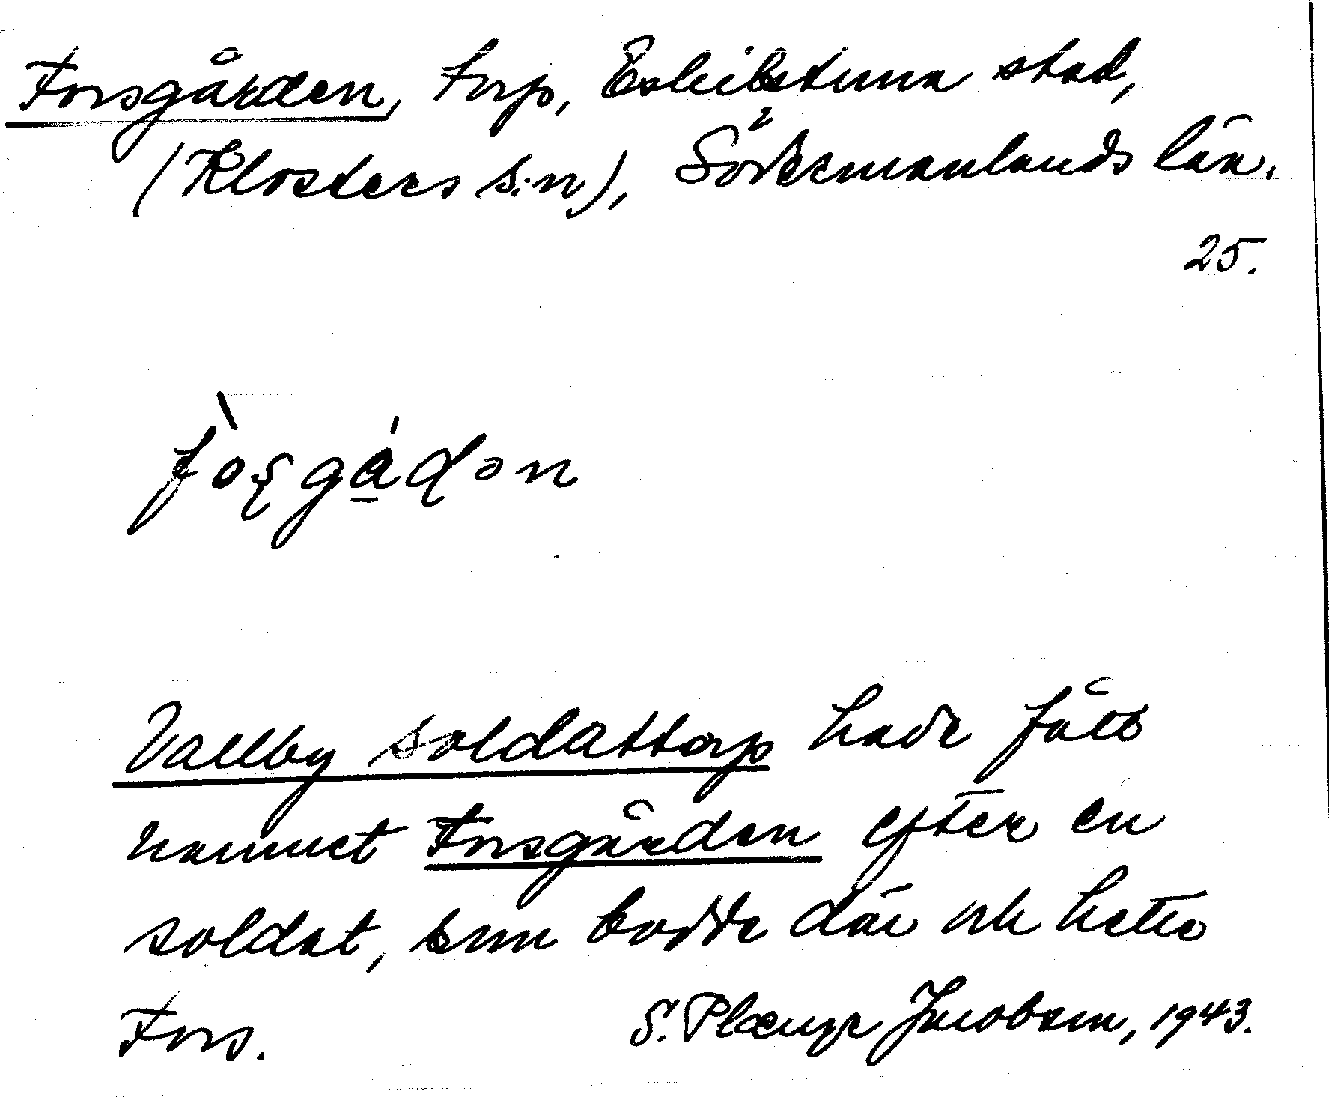 Forsgården, torp, Eskilstuna stad,
(Klosters s:n), Södermanlands län.
25.
fò̀ʂgá̱ɖən
Vallby soldattorp hade fått
namnet Forsgården efter en
soldat, som bodde där och hette
Fors. S. Plænge Jacobson, 1943.